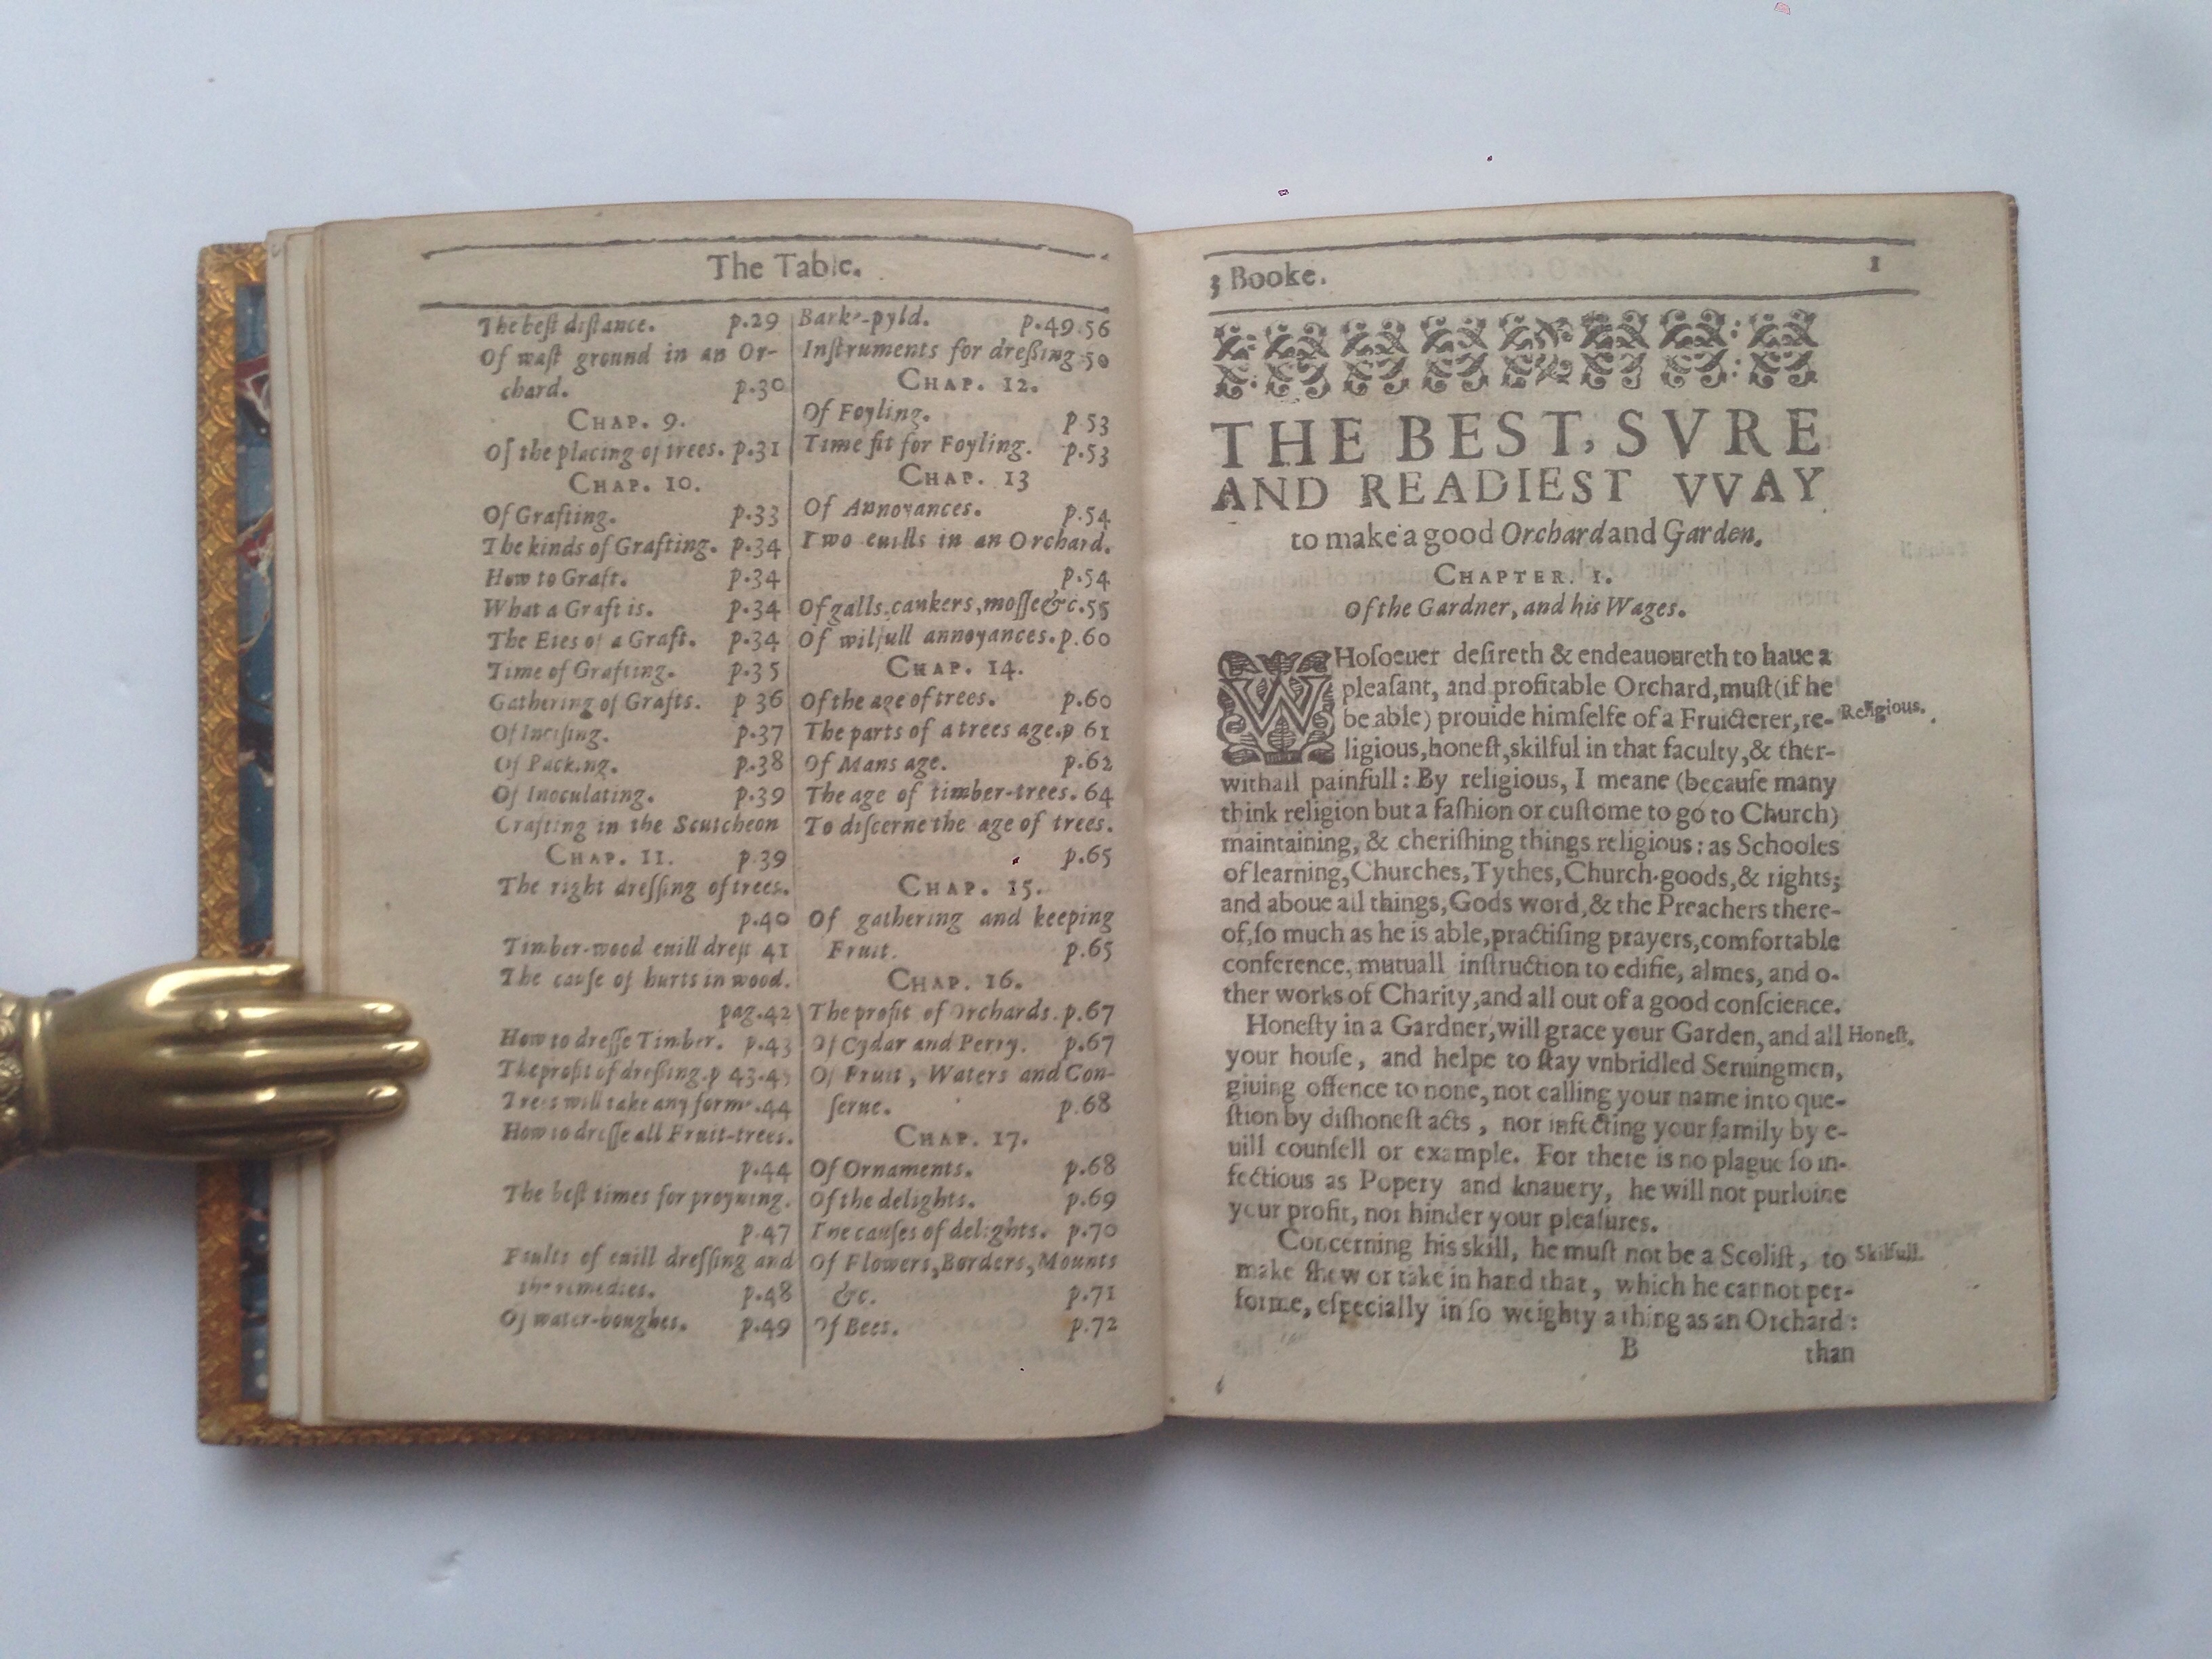 The Table.
The best distance. p.29
Of wast ground in an Or-
chard. p.30
CHAP. 9.
Of the placing of trees. p.31
CHAP. 10.
Of Grafting. p.33
The kinds of Grafting. p.34
How to Graft. p.34
What a Graft is. p.34
The Eies of a Graft. p.34
Time of Grafting. p.35
Gathering of Grafts. p 36
Of Incising. p.37
Of Packing. p.38
Of Inoculating. p.39
Grafting in the Scutcheon
CHAP. 11. p.39
The right dreſſing of trees.
p.40
Timber-wood euill dreſt 41
The cauſe of hurts in wood.
pag.42
How to dreſſe Timber. p.43
The profit of dreſſing.p 43.45
Trees will take any forme.44
How to dreſſe all Fruit-trees.
p.44
The beſt times for proyning.
p.47
Faults of euill dreſſing and
the remedies. p.48
Of water-boughes. p.49
Barke-pyld. p.49.56
Inſtruments for dreſſing 50
CHAP. 12.
Of Foyling. p.53
Time fit for Foyling. p.53
CHAP. 13
Of Annoyances. p.54
Two euills in an Orchard.
p.54
Of galls, cankers, moſſe &c.55
Of wilfull annoyances.p.60
CHAP. 14.
Of the age of trees. p.60
The parts of a trees age.p 61
Of Mans age. p.62
The age of timber-trees. 64
To diſcerne the age of trees.
p.65
CHAP. 15.
Of gathering and keeping
Fruit. p.65
CHAP. 16.
The profit of Orchards. p.67
Of Cydar and Perry. p.67
Of Fruit, Waters and Con-
ſerue. p.68
CHAP. 17.
Of Ornaments. p.68
Of the delights. p.69
The cauſes of delights. p.70
Of Flowers, Borders, Mounts
&c. p.71
Of Bees. p.72
3 Booke. 1
THE BEST, SVRE
AND READIEST VVAY
to make a good Orchard and Garden.
CHAPTER. 1.
Of the Gardner, and his Wages.
WHoſoeuer deſireth & endeauoureth to haue a
pleaſant, and profitable Orchard, muſt (if he
be able) prouide himſelfe of a Fruicterer, re- Religious.
ligious, honeſt, skilful in that faculty, & ther-
withall painfull: By religious, I meane (becauſe many
think religion but a faſhion or cuſtome to go to Church)
maintaining, & cheriſhing things religious: as Schooles
of learning, Churches, Tythes, Church-goods, & rights;
and aboue all things, Gods word, & the Preachers there-
of, ſo much as he is able, practiſing prayers, comfortable
conference, mutuall inſtruction to edifie, almes, and o-
ther works of Charity, and all out of a good conſcience.
Honeſty in a Gardner, will grace your Garden, and all Honeſt.
your houſe, and helpe to ſtay vnbridled Seruingmen,
giuing offence to none, not calling your name into que-
ſtion by diſhoneſt acts, nor infecting your family by e-
uill counſell or example. For there is no plague ſo in-
fectious as Popery and knauery, he will not purloine
your profit, nor hinder your pleaſures.
Concerning his skill, he muſt not be a Scoliſt, to Skilfull.
make ſhew or take in hand that, which he cannot per-
forme, eſpecially in ſo weighty a thing as an Orchard:
B than